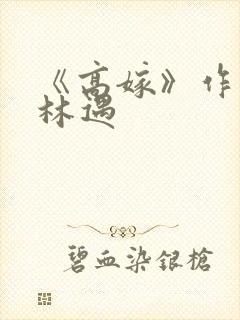 《高嫁》作
林遇
碧血染银槍